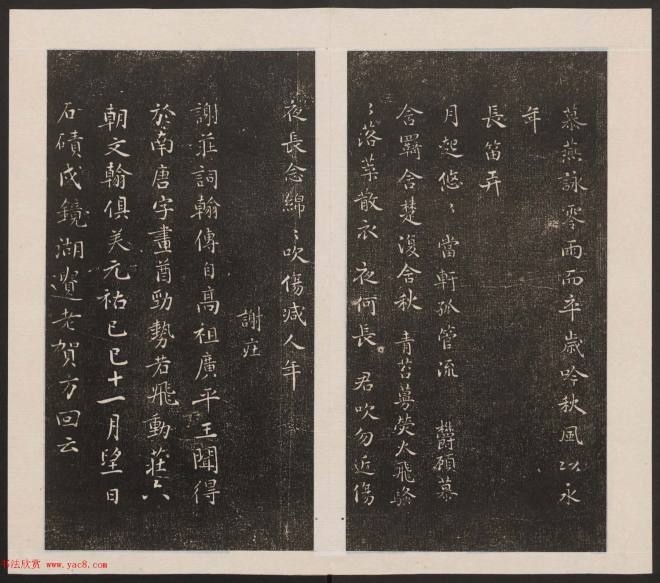 慕燕詠零雨而卒歲吟秋風以永
年
長笛弄
月起悠〻當軒孤管流 欝顧慕
含羈含楚復含秋 青苔蔓熒火飛騒
〻落葉散衣 夜何長 君吹勿近傷
夜長念綿〻吹傷減人年
謝莊
謝莊詞翰傳自高祖廣平王聞得
於南唐字畫酋勁勢若飛動莊六
朝文翰俱美元祐己巳十一月望日
石磧戍鏡湖遺老賀方回云
书法欣赏 www.yac8.com